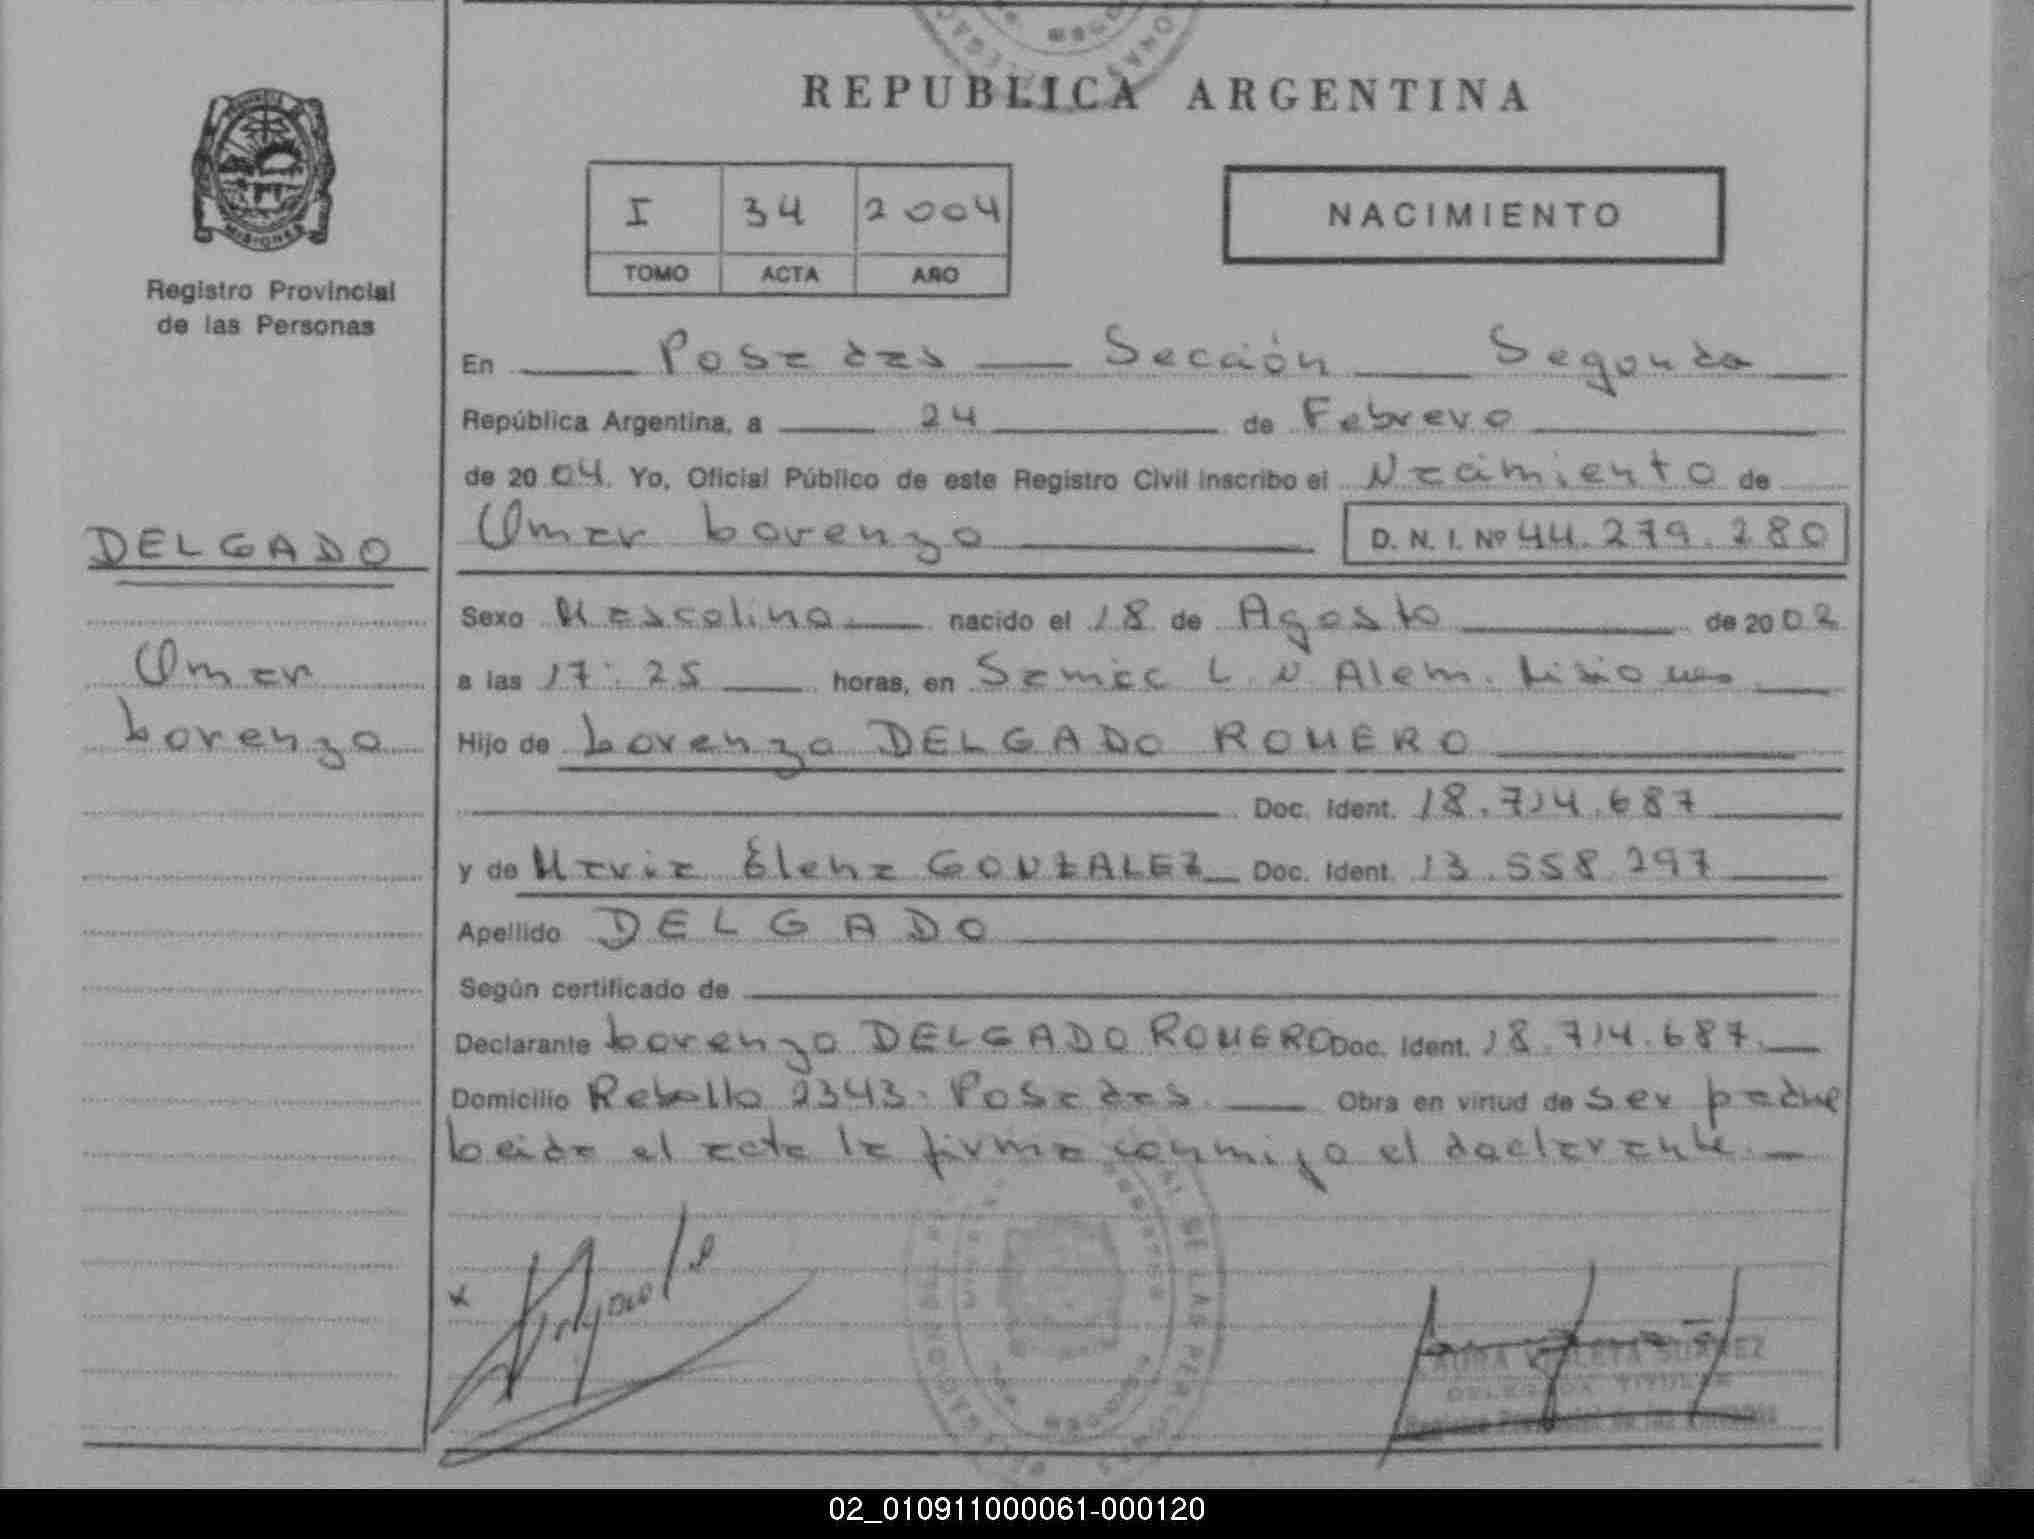 REPUBLICA ARGENTINA
MISIONES
Registro Provincial
de las Personas
I 34 2004
TOMO ACTA AÑO
NACIMIENTO
En Posadas Sección Segunda
República Argentina, a 24 de Febrero
de 2004. Yo, Oficial Público de este Registro Civil inscribo el Nacimiento de
Omar Lorenzo D. N. I. Nº 44.279.280
DELGADO
Omar
Lorenzo
Sexo Masculino nacido el 18 de Agosto de 2002
a las 17:25 horas, en Samic L. N Alem. Misiones
Hijo de Lorenzo DELGADO ROMERO
Doc. Ident. 18.714.687
y de Maria Elena GONZALEZ Doc. Ident. 13.558.297
Apellido DELGADO
Según certificado de
Declarante Lorenzo DELGADO ROMERO Doc. Ident. 18.714.687.
Domicilio Rebollo 2343. Posadas. Obra en virtud de ser padre
Leida el acta la firma conmigo el declarante.
DE LAS PERSONAS
LAURA VIOLETA SUAREZ
DELEGADA TITULAR
Registro Provincial de las Personas
02_010911000061-000120